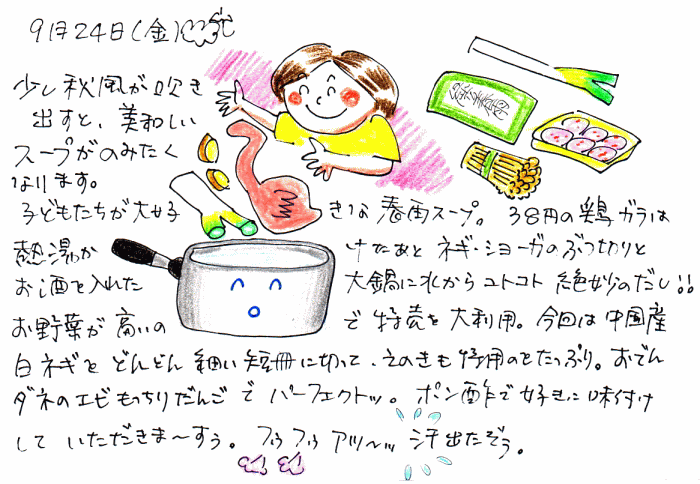 9月24日(金)
少し秋風が吹き
出すと、美味しい
スープがのみたく
なります。
子どもたちが大好きな春雨スープ。38円の鶏ガラは
熱湯かけたあとネギ・ショーガのぶつ切りと
お酒を入れた大鍋に水からコトコト絶妙のだし!!
お野菜が高いので特売を大利用。今回は中国産
白ネギをどんどん細い短冊に切って、えのきも特用のをたっぷり。おでん
ダネのエビもっちりだんごでパーフェクトッ。ポン酢で好きに味付け
していただきま〜すぅ。フゥフゥアツ〜ッ汗出たぞぅ。